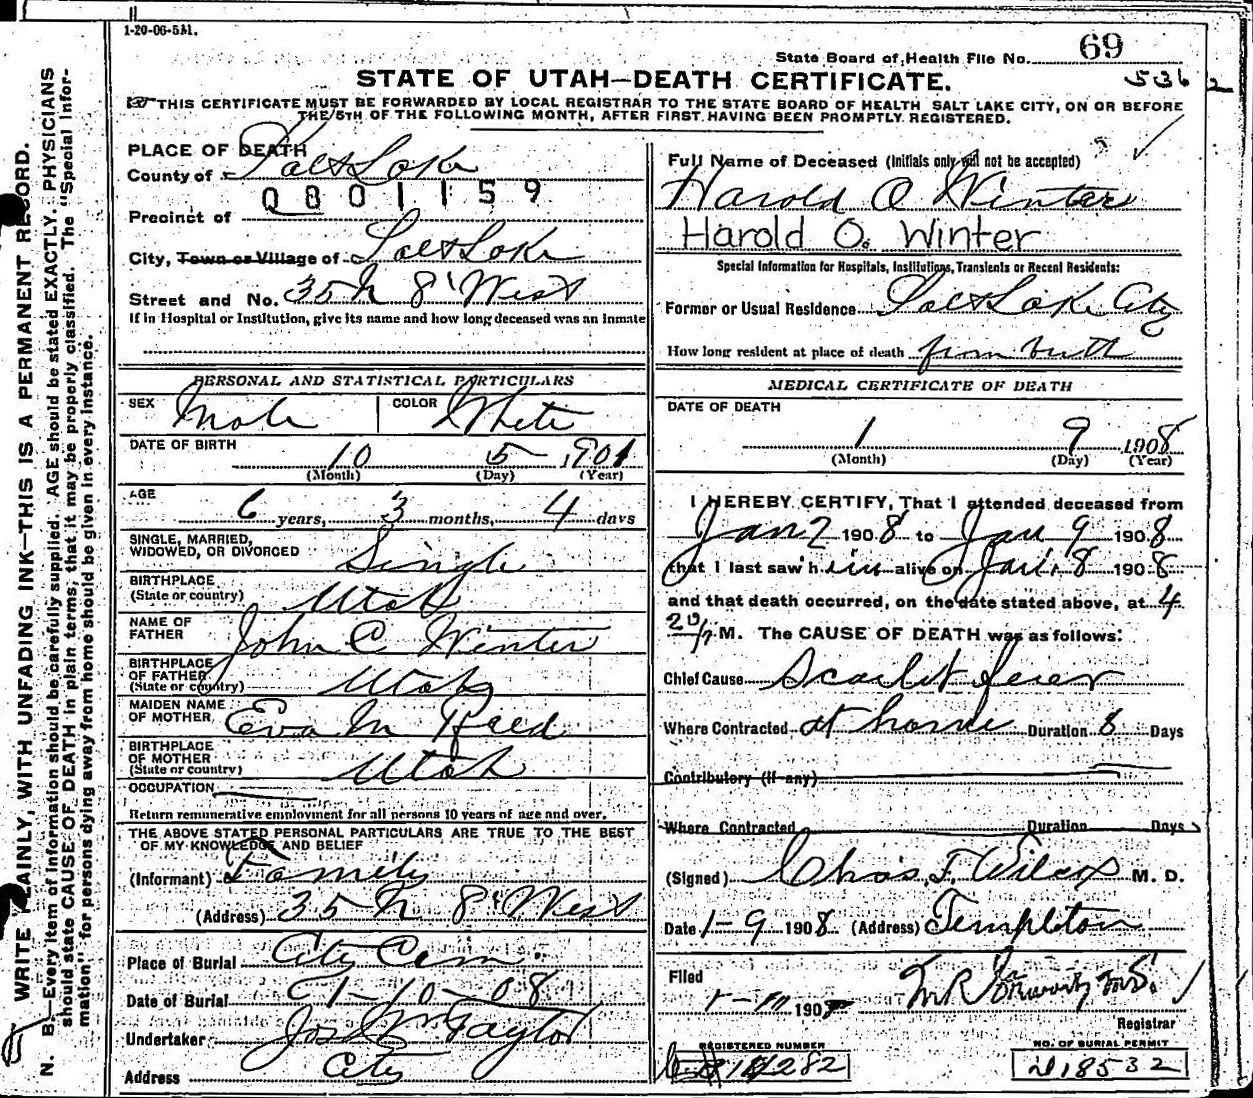 1-20-06-5M.
State Board of Health File No. 69
536 2
STATE OF UTAH—DEATH CERTIFICATE.
THIS CERTIFICATE MUST BE FORWARDED BY LOCAL REGISTRAR TO THE STATE BOARD OF HEALTH SALT LAKE CITY, ON OR BEFORE
THE 5TH OF THE FOLLOWING MONTH, AFTER FIRST HAVING BEEN PROMPTLY REGISTERED.
WRITE PLAINLY, WITH UNFADING INK—THIS IS A PERMANENT RECORD.
N. B. Every item of information should be carefully supplied. AGE should be stated EXACTLY. PHYSICIANS
should state CAUSE OF DEATH in plain terms, that it may be properly classified. The "Special Infor-
mation" for persons dying away from home should be given in every instance.
PLACE OF DEATH
County of Salt Lake
0801159
Precinct of
City, Town or Village of Salt Lake
Street and No. 35 N 8' West
If in Hospital or Institution, give its name and how long deceased was an inmate
PERSONAL AND STATISTICAL PARTICULARS
SEX Male COLOR White
DATE OF BIRTH
10 5 1901
(Month) (Day) (Year)
AGE
6 years, 3 months, 4 days
SINGLE, MARRIED,
WIDOWED, OR DIVORCED Single
BIRTHPLACE
(State or country) Utah
NAME OF
FATHER John C Winter
BIRTHPLACE
OF FATHER
(State or country) Utah
MAIDEN NAME
OF MOTHER Eva M Reed
BIRTHPLACE
OF MOTHER
(State or country) Utah
OCCUPATION
Return remunerative employment for all persons 10 years of age and over.
THE ABOVE STATED PERSONAL PARTICULARS ARE TRUE TO THE BEST
OF MY KNOWLEDGE AND BELIEF
(Informant) Family
(Address) 35 N 8' West
Place of Burial City Cem.
Date of Burial 1-10-08
Undertaker Jos Wm Taylor
Address City
Full Name of Deceased (Initials only will not be accepted)
Harold O Winter
Harold O. Winter
Special Information for Hospitals, Institutions, Transients or Recent Residents:
Former or Usual Residence Salt Lake City
How long resident at place of death from birth
MEDICAL CERTIFICATE OF DEATH
DATE OF DEATH
1 9 1908
(Month) (Day) (Year)
I HEREBY CERTIFY, That I attended deceased from
Jan 2 1908 to Jan 9 1908
that I last saw him alive on Jan. 8 1908
and that death occurred, on the date stated above, at 4
M. The CAUSE OF DEATH was as follows:
Chief Cause Scarlet fever
Where Contracted at home Duration 8 Days
Contributory (if any)
Where Contracted Duration Days
(Signed) Chas. F. Wilcox M. D.
Date 1-9 1908 (Address) Templeton
Filed
1908
Registrar
REGISTERED NUMBER
NO. OF BURIAL PERMIT
18532